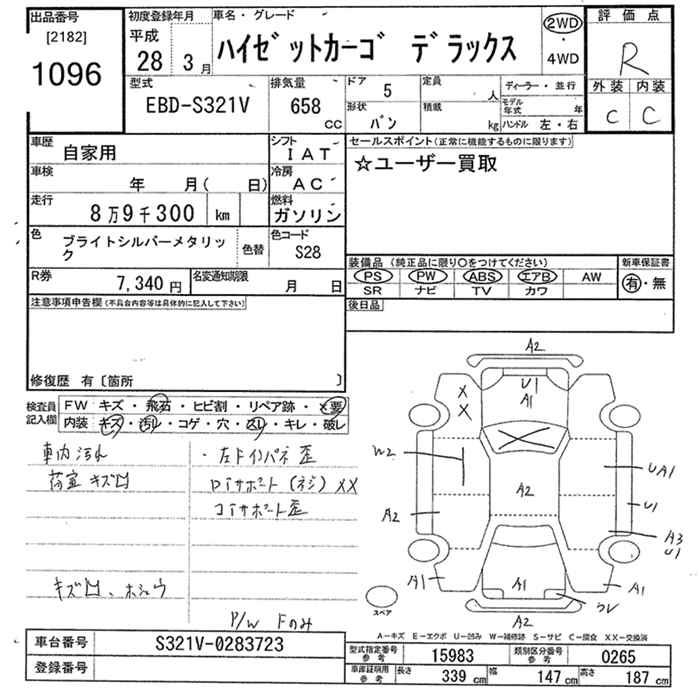 出品番号
[2182]
1096
初度登録年月
平成
28年 3月
車名・グレード
ハイゼットカーゴ デラックス
2WD
・
4WD
評価点
R
外装 内装
C C
型式
EBD-S321V
排気量
658
CC
ドア
5
定員
人
形状
バン
積載
kg
ディーラー・並行
モデル年式 年
ハンドル 左・右
車歴
自家用
シフト
IAT
車検
年 月( 日)
冷房
AC
走行
8万9千300 km
燃料
ガソリン
色
ブライトシルバーメタリック
色替
色コード
S28
R券
7,340円
名変通知期限
月 日
セールスポイント(正常に機能するものに限ります)
☆ユーザー買取
装備品(純正品に限り○をつけてください)
新車保証書
PS PW ABS エアB AW
SR ナビ TV カワ
有・無
後日品
注意事項申告欄(不具合内容等は具体的に記入して下さい)
修復歴 有〔箇所 〕
検査員記入欄
FW キズ・飛石・ヒビ割・リペア跡・×要
内装 キズ・汚レ・コゲ・穴・凹レ・キレ・破レ
車内汚れ
荷室キズ凹
・左Fインパネ歪
Dサポート(ネジ)XX
コアサポート歪
P/W Fのみ
A2
U1
A1
X
X
W2
A2
A2
UA1
U1
A3
U1
A1
A1
A1
A2
スペア
A-キズ E-エクボ U-凹み W-補修跡 S-サビ C-腐食 XX-交換済
車台番号
S321V-0283723
登録番号
型式指定番号
参考
15983
類別区分番号
参考
0265
車庫証明用
参考
長さ
339 cm
幅
147 cm
高さ
187 cm